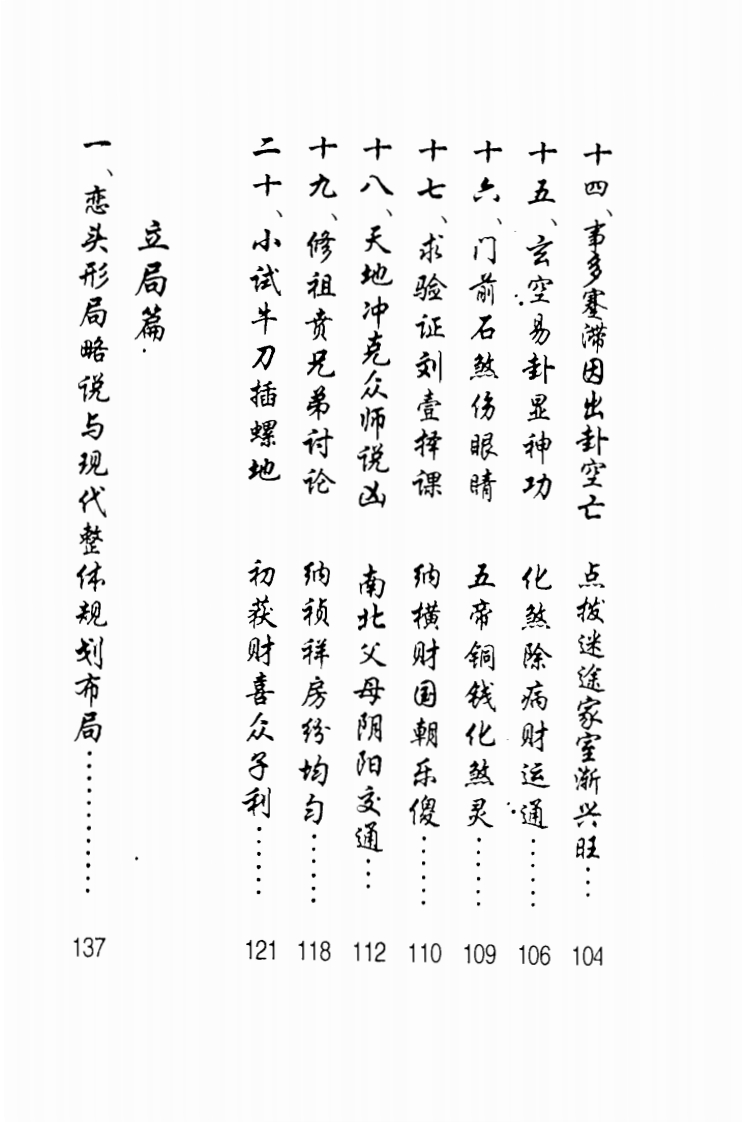 十四、事多塞滞因出卦空亡 点拨迷途家室渐兴旺…104
十五、玄空易卦显神功 化煞除病财运通……106
十六、门前石煞伤眼睛 五帝铜钱化煞灵……109
十七、求验证刘壹择课 纳横财国朝乐傻……110
十八、天地冲克众师说凶 南北父母阴阳交通…112
十九、修祖贲兄弟讨论 纳祯祥房纷均匀……118
二十、小试牛刀插螺地 初获财喜众子利……121
立局篇
一、恋头形局略说与现代整体规划布局…………137